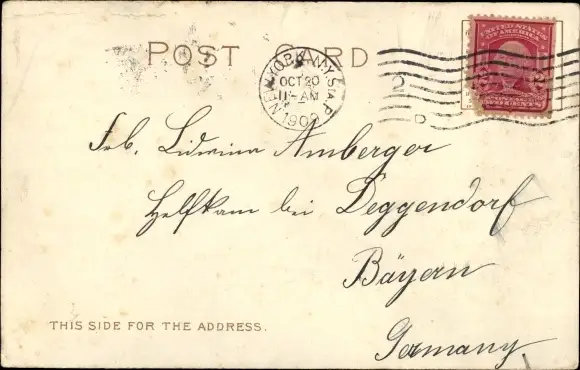 POST CARD
NEW YORK, N.Y. STA. P
OCT 20
11 - AM
190
2
D
UNITED STATES
OF AMERICA
2 2
TWO CENTS
Frl. Lidwina Amberger
Helfkam bei Deggendorf
Bäyern
THIS SIDE FOR THE ADDRESS.
Germany.